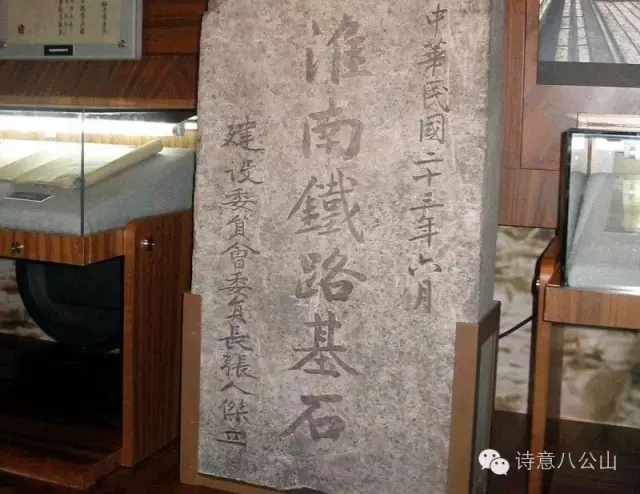 中華民國二十三年六月
淮南鐵路基石
建设委員會委員長張人傑
诗意八公山